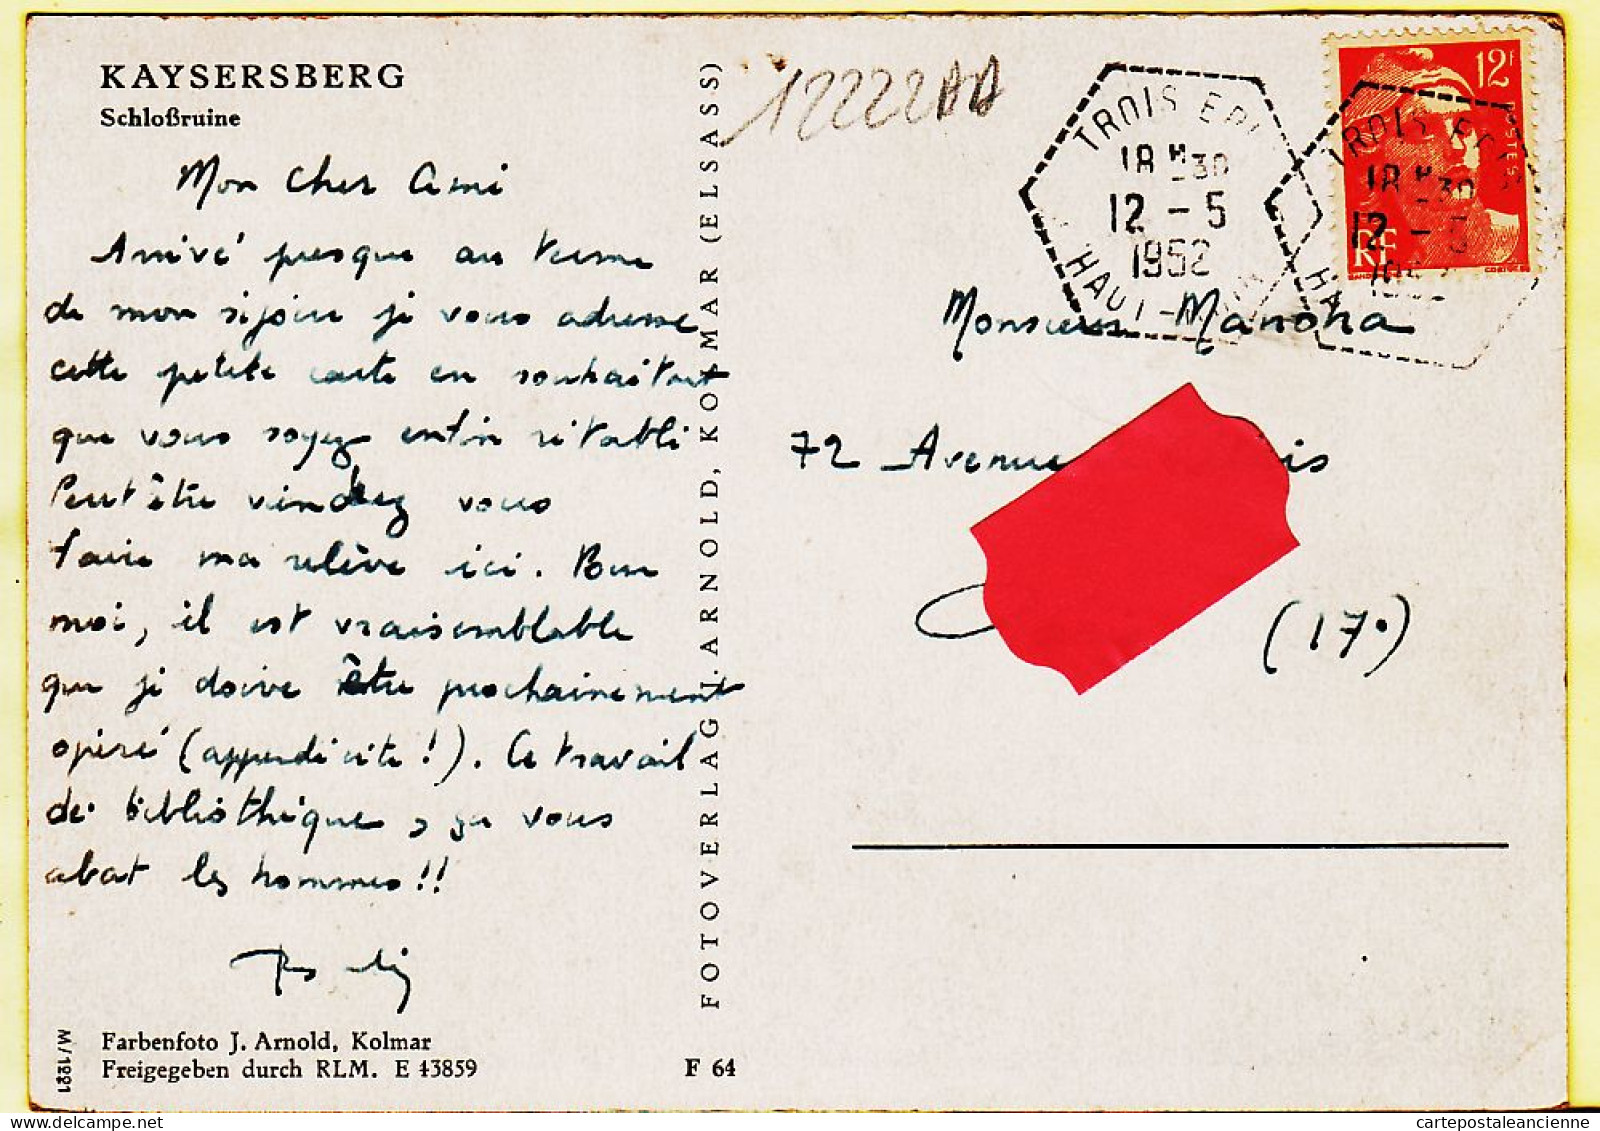 KAYSERSBERG
Schloßruine
Mon cher Ami
Arrivé presque au terme
de mon séjour je vous adresse
cette petite carte en souhaitant
que vous soyez enfin rétabli
Peut être viendrez vous
faire ma relève ici. Pour
moi, il est vraisemblable
que je doive être prochainement
opéré (appendicite!). Ce travail
de bibliothèque, ça vous
abat les hommes!!
Farbenfoto J. Arnold, Kolmar
Freigegeben durch RLM. E 43859
M/1221
F 64
FOTOVERLAG J. ARNOLD, KOLMAR (ELSASS)
12222AA
TROIS EPIS
18 H 30
12 - 5
1952
HAUT-RHIN
12F
POSTES
RF
TROIS EPIS
18 H 30
12 - 5
1952
Monsieur Manoha
72 Avenue
(17e)
cartepostaleancienne